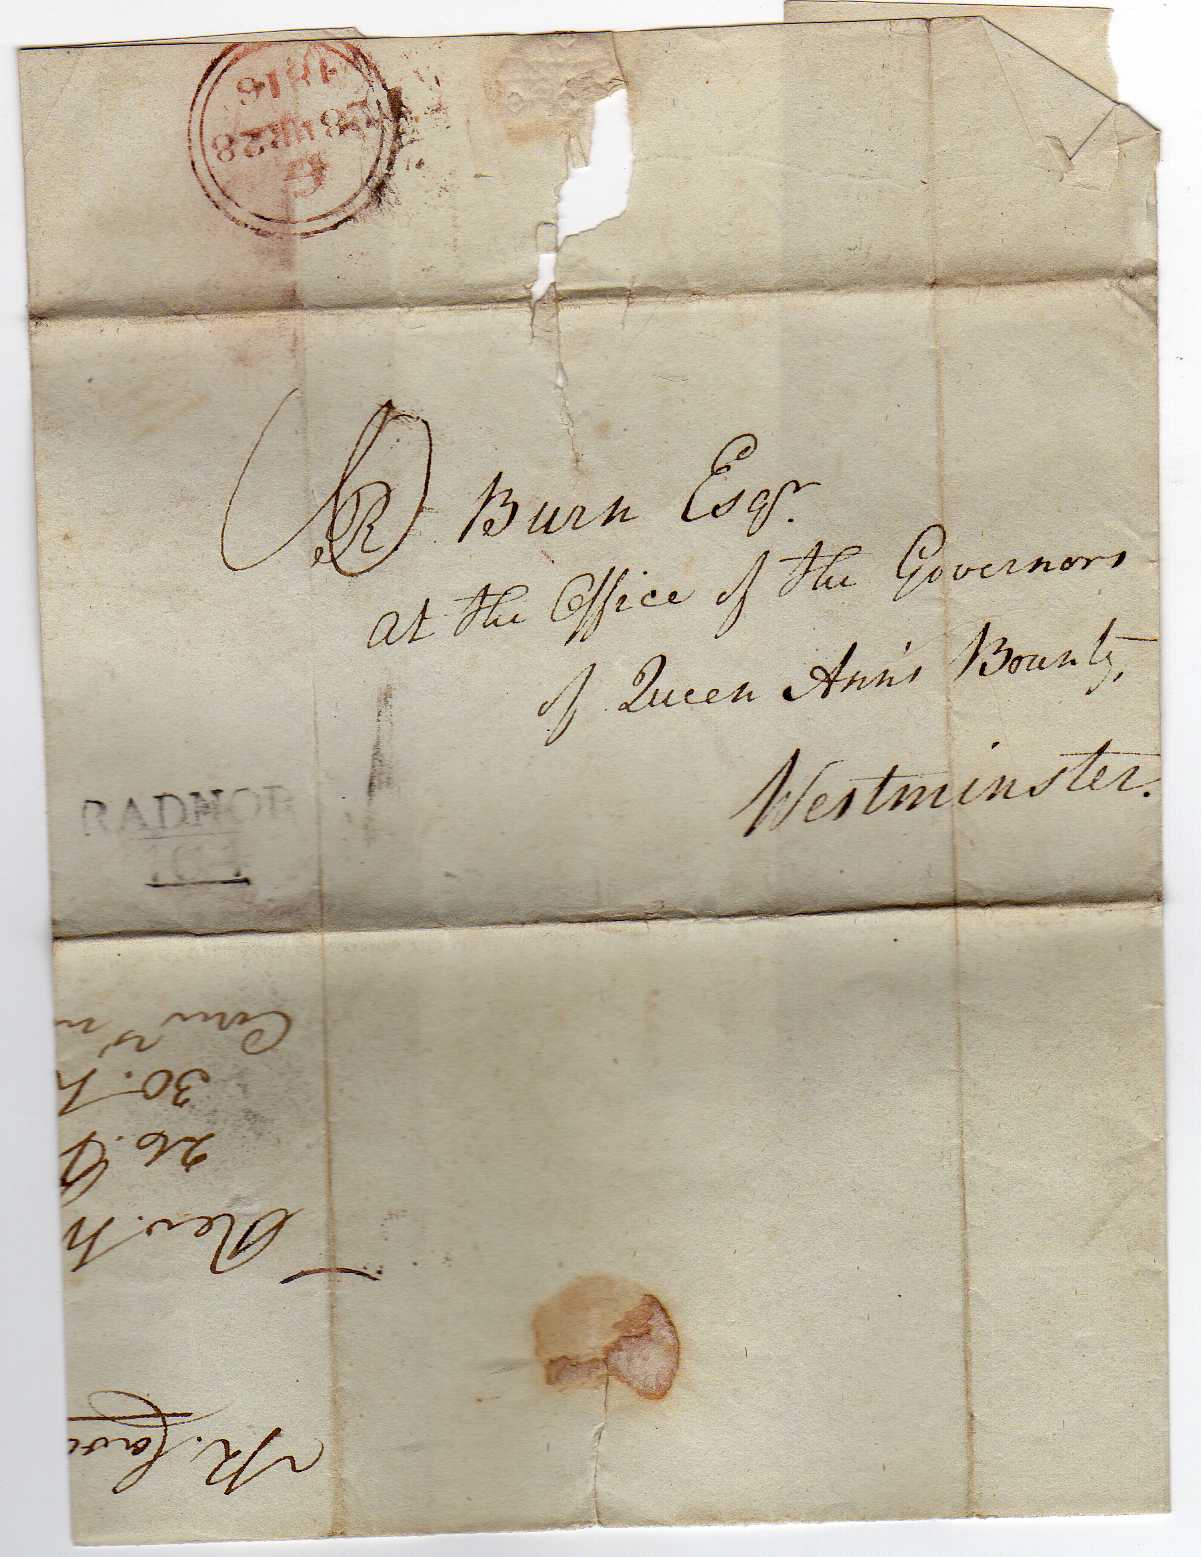 28 MR 28
1818
R Burn Esqr.
at the Office of the Governors
of Queen Ann's Bounty,
Westminster.
RADNOR
30.
26.
Rev.